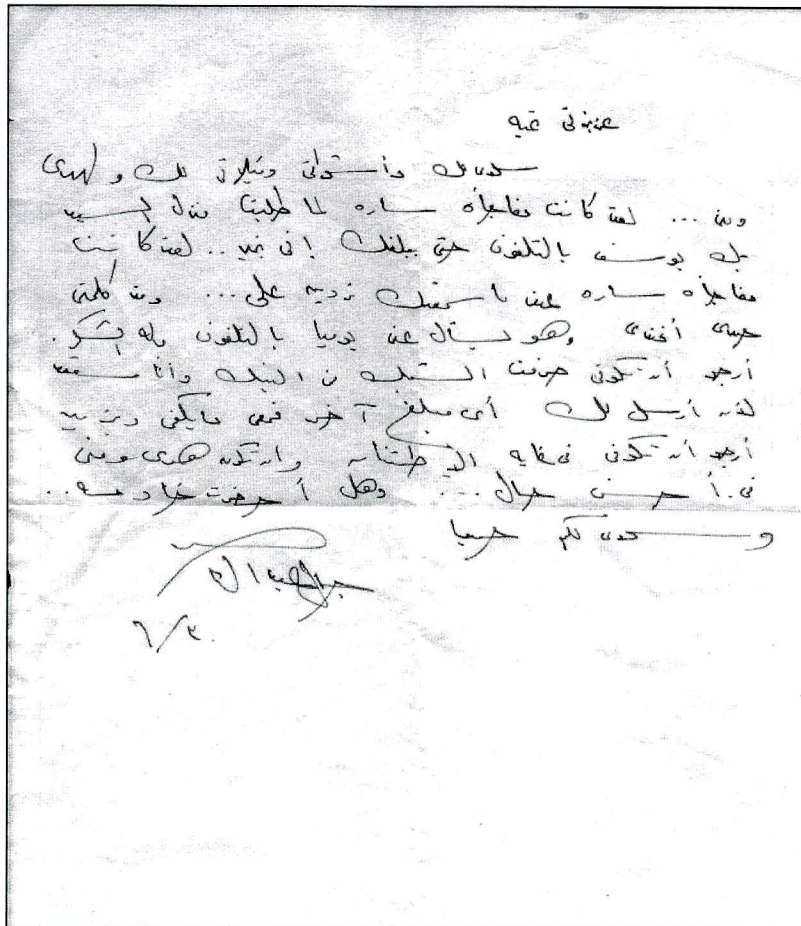 عزيزتي تحيه
سلامي لك وأشواقي وقبلاتي لك ولهدى
ومنى ... لقد كانت مفاجأة ساره لما طلبنا منزل السيد
بك يوسف بالتلفون حتى يبلغك إنى بخير .. لقد كانت
مفاجأه ساره عندما سمعتك تردين على ... وقد كلمنى
حمدى أفندى وهو يسأل عنى يوميا بالتلفون وله الشكر.
أرجو أن تكونى صرفت الشيك من البنك وأنا مستعد
لأن أرسل لك أى مبلغ آخر فمعى ما يكفى ويزيد
أرجو أن تكونى فى غايه الإطمئنان وان تكون هدى ومنى
فى أحسن حال ... وهل أحضرت خادمه ..
وسلامى لكم جميعا
جمال عبد الناصر
٦/٣٠